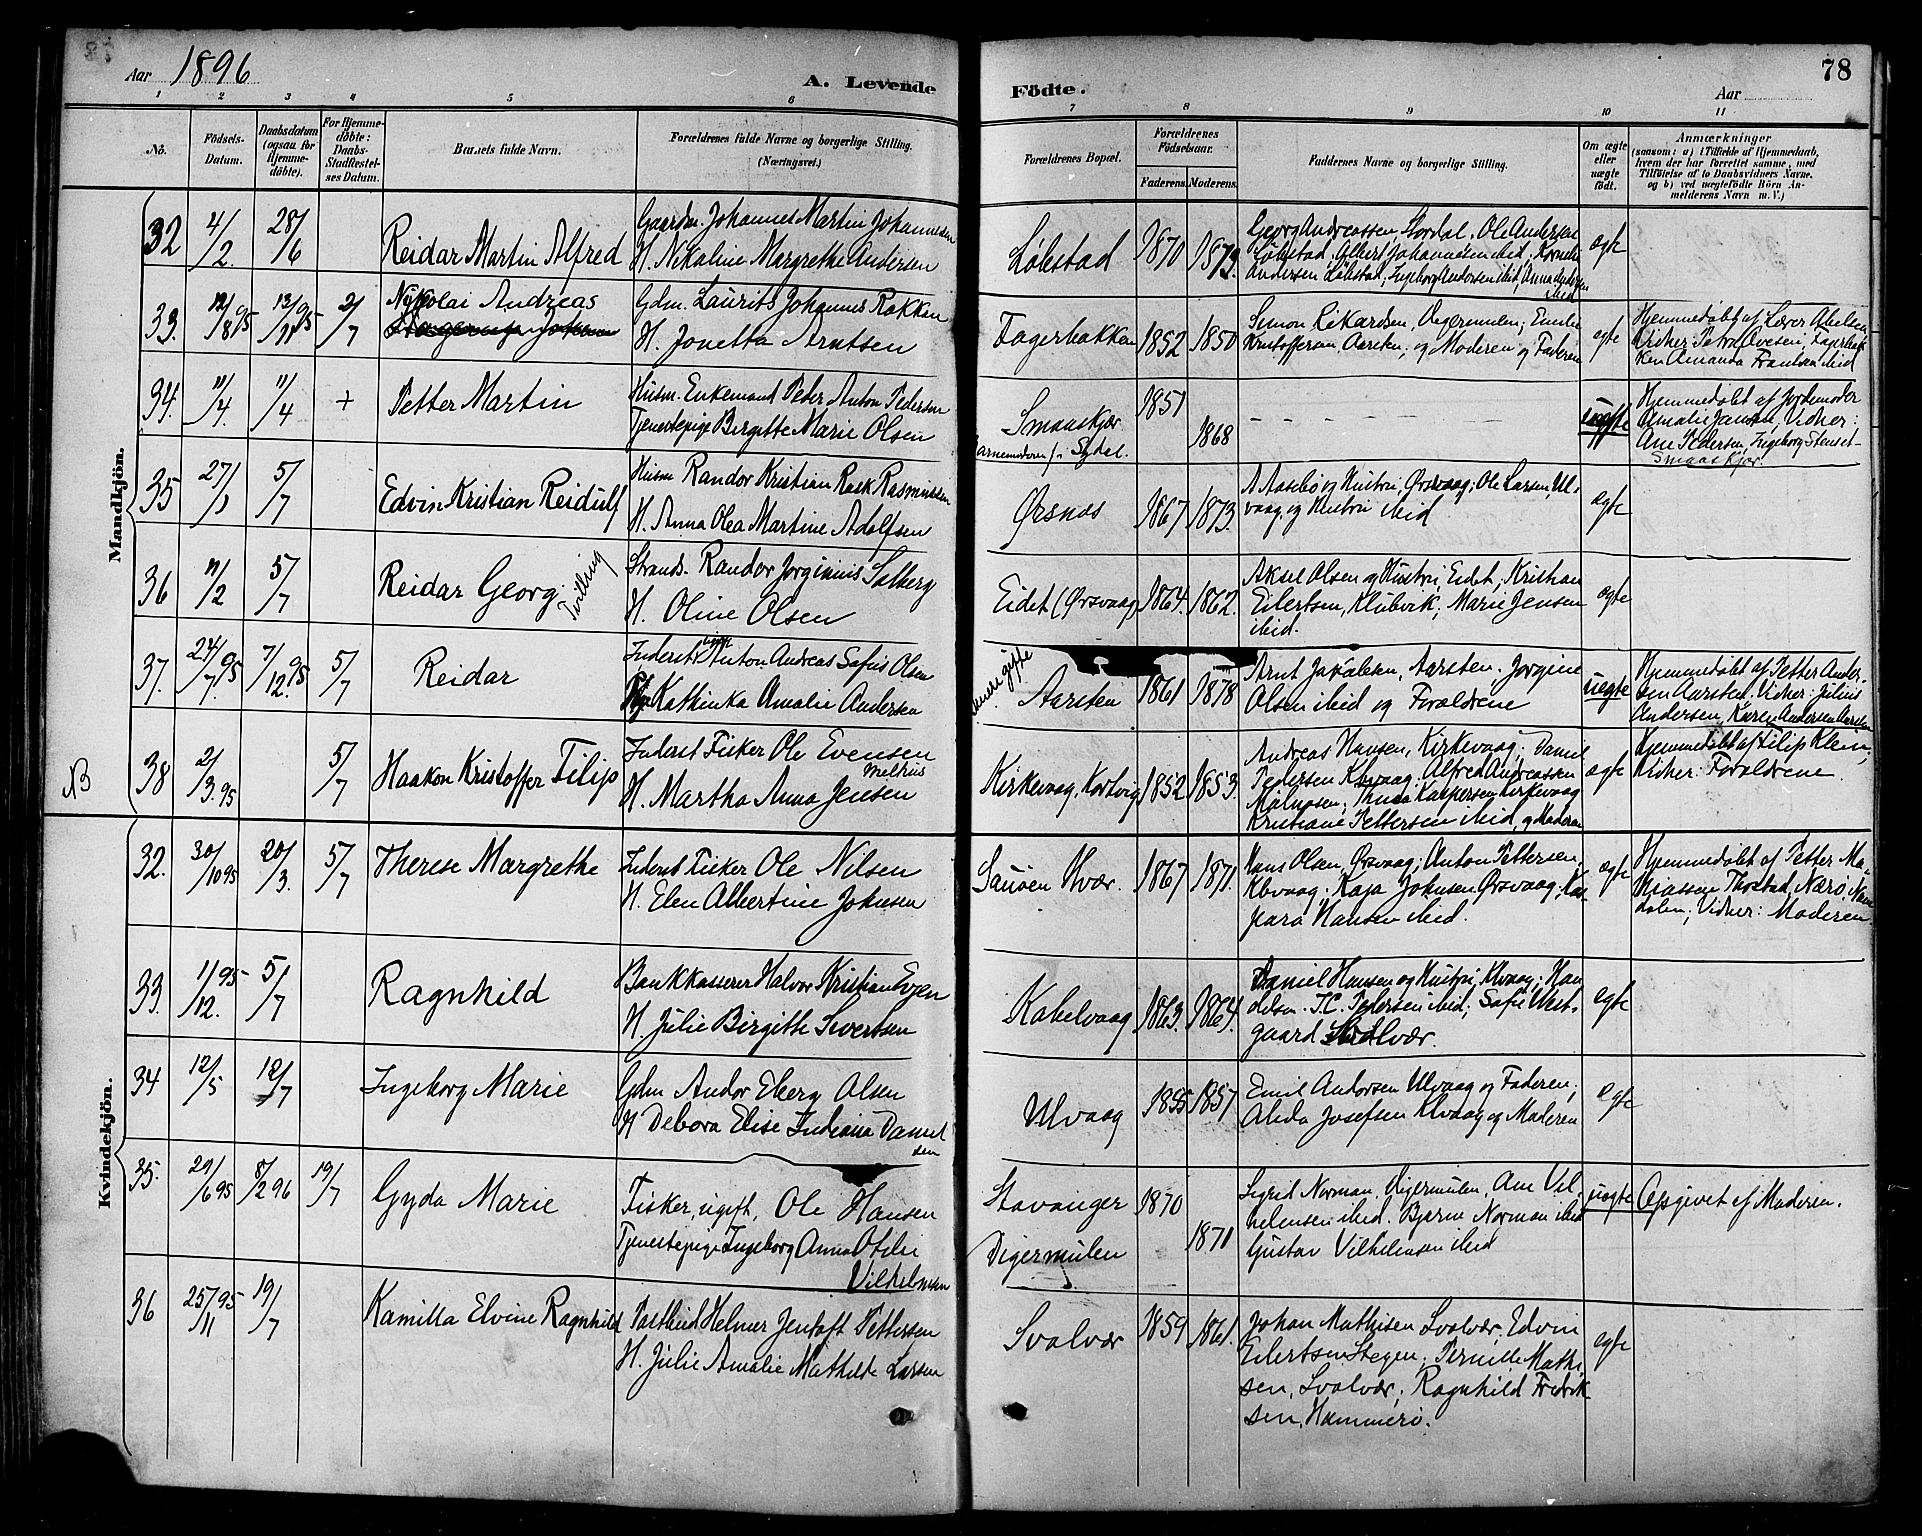 Aar 1896
A. Levende
Födte.
Aar
78
1 2 3 4 5 6 7 8 9 10 11
No.
Födsels-
Datum.
Daabsdatum
(ogsaa for
Hjemme-
döbte).
For Hjemme-
döbte:
Daabs-
Stadfæstel-
ses Datum.
Barnets fulde Navn.
Forældrenes fulde Navne og borgerlige Stilling.
(Næringsvei.)
Forældrenes Bopæl.
Forældrenes
Födselsaar.
Faderens. Moderens.
Faddernes Navne og borgerlige Stilling.
Om ægte
eller
uægte
födt.
Anmærkninger
(saasom: a) i Tilfælde af Hjemmedaab,
hvem der har forrettet samme, med
Tilföielse af to Daabsvidners Navne.
og b) ved uægtefödte Börn An-
melderens Navn m. V.)
Mandkjön.
32 4/2. 28/6 Reidar Martin Alfred
Gaardm. Johannes Martin Johannesen
H. Nikoline Margrethe Andersen
Löbstad 1870 1873.
Georg Andreassen Stordal, Ole Andersen
Löbstad, Albert Johannesen ibid, Kornelie
Andersen Löbstad, Ingeborg Andersen ibid, Anna Andersen
ibid
ægte
33. 12/8 95 13/11 95 2/7 Nikolai Andreas
Gdm. Laurits Johannes Rokken
H. Jonetta Arntsen
Fagerbakken 1852 1850
Simon Rikardsen, Digermulen; Emilie
Kristoffersen, Aarsten; og Moderen og Faderen
ægte
Hjemmedöbt af Lover Abelsen
Vidner: Petra Ovesen, Fagerbak-
ken Amanda Frantsen ibid
34. 11/4. 11/4 + Petter Martin
Husm. Enkemand Peter Anton Pedersen
Tjenestepige Birgitte Marie Olsen
Smaaskjær
Barnemoderen fr. Sydal.
1851 1868
uægte
Hjemmedöbt af Jordemoder
Amalie Jansen, Vidner:
Ane Pedersen, Ingeborg Stenset-
Smaaskjær.
35 27/1 5/7 Edvin Kristian Reidulf
Husm Randor Kristian Rask Rasmussen
H. Anna Olea Martine Adolfsen
Ørsnes 1867 1873.
A Aasebö og Hustru, Ørsvaag; Ole Larsen, Ul-
vaag, og Hustru ibid
ægte
36 11/2 5/7 Reidar Georg Tvilling
Strands. Randor Jorginius Solberg
H. Oline Olsen
Eidet (Ørsvaag) 1864. 1862.
Aksel Olsen og Hustru, Eidet; Kristian
Eilertsen, Klubvik; Marie Jensen
ibid.
ægte
37. 24/7. 95 7/12. 95 5/7 Reidar
Inderst, ugift Anton Andreas Sofus Olsen
Pige Kathinka Amalie Andersen
senere gifte
Aarsten 1861 1878
Arnt Jakobsen, Aarsten, Jorgine
Olsen ibid og Forældrene
uægte
Hjemmedöbt af Petter Ander-
sen Aarsten. Vidner: Julius
Andersen, Karen Andersen Aarsten
NB 38 2/3. 95 5/7 Haakon Kristoffer Filip
Inderst Fisker Ole Evensen
Melhus
H. Martha Anna Jensen
Kirkevaag, Kortvig 1852 1853.
Andreas Hansen, Kirkevaag; Daniel
Pedersen Klvaag; Alfred Andreassen
Molnosen; Thina Kaspersen Kirkevaag
Kristiane Pettersen ibid, og Moderen
ægte
Hjemmedöbt af Filip Klein,
Vidner: Forældrene.
Kvindekjön.
32. 30/10 95 20/3. 5/7 Therese Margrethe
Inderst Fisker Ole Nilsen
H. Elen Albertine Johnsen
Sauöen Hvær. 1867 1871.
Hans Olsen, Ørsvaag; Anton Pettersen,
Klvaag; Kaja Johnsen Ørsvaag, Kas-
para Hansen ibid.
ægte
Hjemmedöbt af Petter Ma-
thiassen Thostad, Nærö, Nam-
dalen; Vidner: Moderen
33. 1/12. 95 5/7 Ragnhild
Bankkasserer Halvor Kristian Evjen
H. Julie Birgitte Sivertsen
Kabelvaag 1863. 1864.
Daniel Hansen og Hustru, Klvaag; Han-
delsm. I.C. Pedersen ibid; Sofie Vest-
gaard Svolvær.
ægte
34 12/5 12/7 Ingeborg Marie
Gdm Andor Eberg Olsen
H Debora Elise Indiana Daniel-
sen
Ulvaag 1855 1857
Emil Andorsen Ulvaag og Faderen;
Alida Josefsen Klvaag og Moderen
ægte
35. 29/6 95 8/2 96 19/7 Gyda Marie
Fisker, ugift, Ole Hansen
Tjenestepige Ingeborg Anna Otilie
Vilhelmsen
Stavanger
Digermulen
1870 1871
Sigrid Norman, Digermulen, Ane Vil-
helmsen ibid. Bjarne Norman ibid
Gustav Vilhelmsen ibid
uægte
Opgivet af Moderen.
36 25/11 95 19/7 Kamilla Elvine Ragnhild
Postbud Helmer Jentoft Pettersen
H. Julie Amalie Mathilde Larsen
Svolvær 1859 1861.
Johan Mathisen Svolvær, Edvin
Eilertsen Stegen; Pernille Mathi-
sen, Svolvær; Ragnhild Fredrik-
sen, Hammerö.
ægte